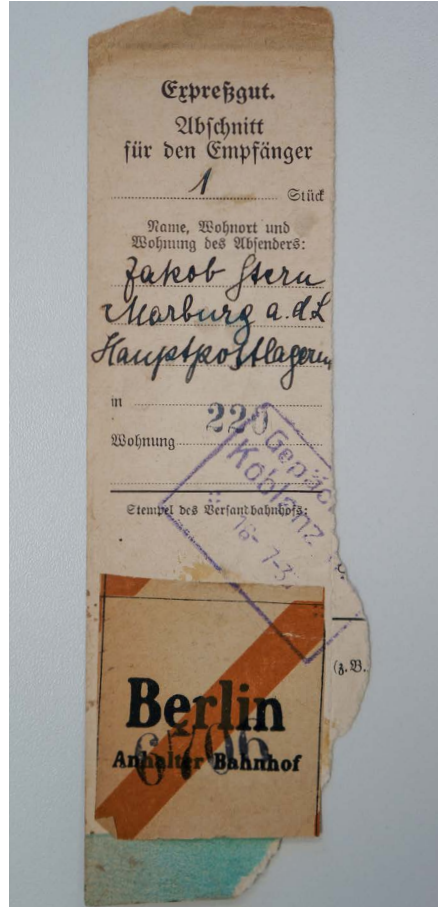 Expreßgut.
Abschnitt
für den Empfänger
1 Stück
Name, Wohnort und
Wohnung des Absenders:
Jakob Stern
Marburg a.d.L
Hauptpostlagernd
in
220
Wohnung
Gepäck
Koblenz
Stempel des Versandbahnhofs:
16-7-3
(z.B.
Berlin
6706
Anhalter Bahnhof